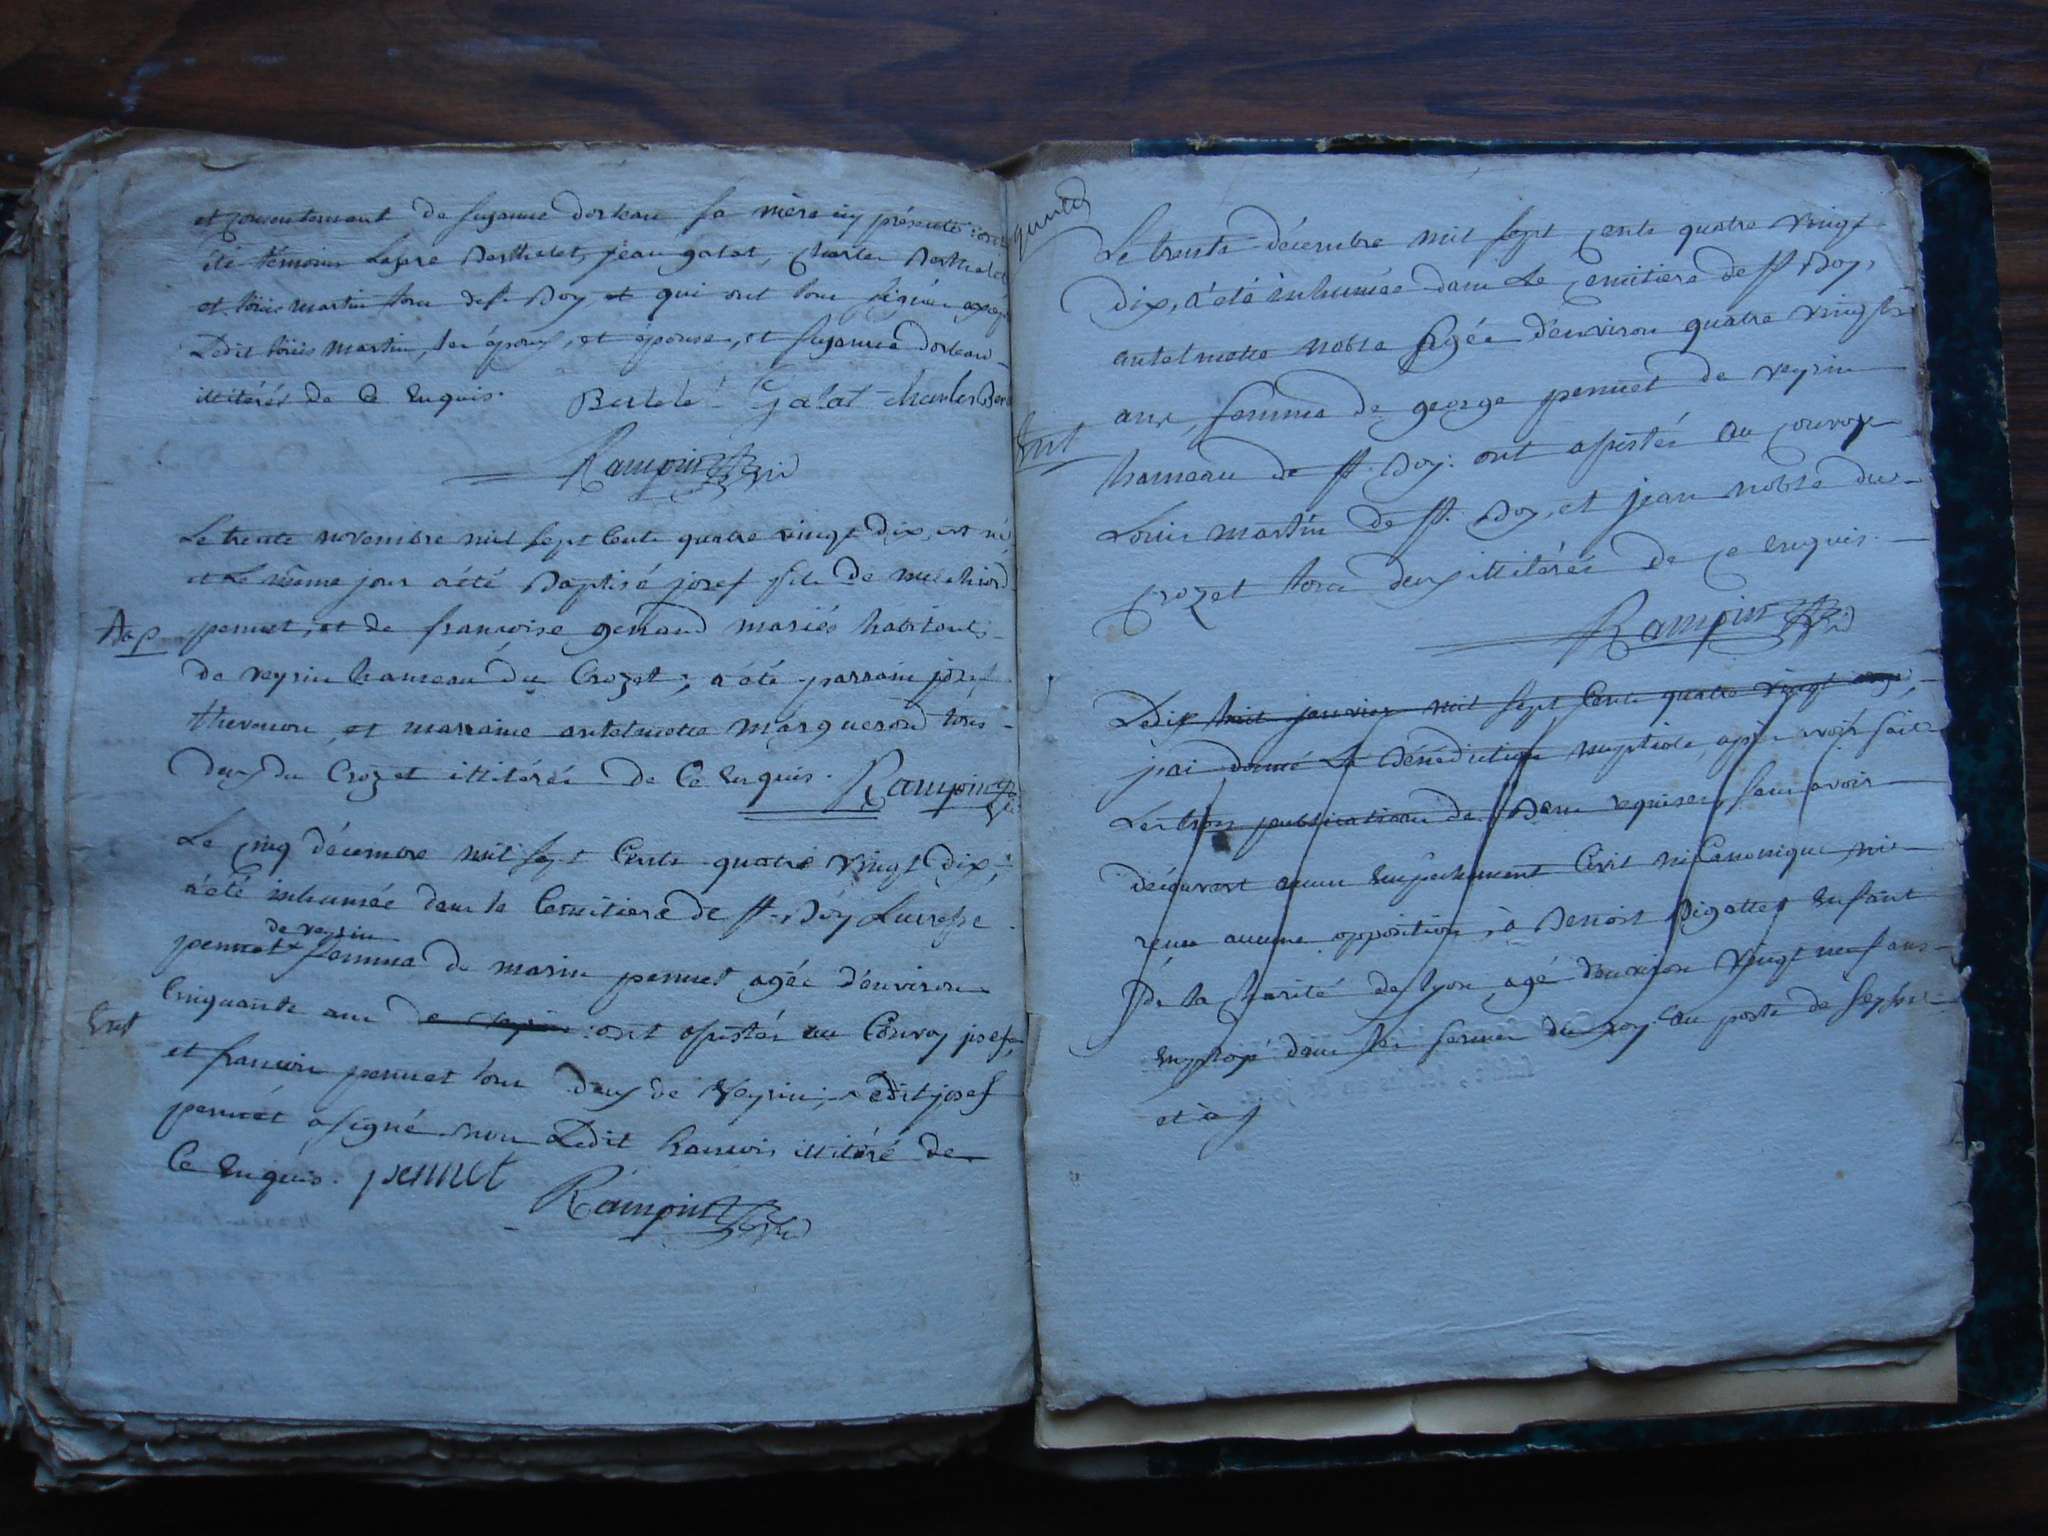 et consentement de suzanne dorleau sa mère icy présente ont
été témoins Lazare Berthelet, jean galat, charles Berthelet
et louis martin tous de st Boy, et qui ont tous signés excepté
Ledit louis martin, les époux, et épouse, et suzanne dorleau
illitérés de ce Enquis. Bertelé Galat charles Ber
Rampin
Le trente novembre mil sept cents quatre vingt Dix, est né
et le même jour a été Baptisé josef fils de melchiord
Bap pernet, et de françoise genand mariés habitants
de veyrin hameau du Crozet; a été parrain josef
thevenon, et marraine antelmette Marguerond tous
deux du Crozet illitérés de Ce Enquis. Rampin
Le cinq décembre mil sept Cents quatre vingt Dix,
a été inhumée dans le Cemitiere de st. Boy
de veyrin
pernet femme de marin pernet agée d'environ
Ent Cinquante ans ont assistés au Convoy josef,
et francois pernet tous deux de Veyrin, Ledit josef
pernet a signé non Ledit francois illitéré de
Ce Enquis. pernet
Rampin
Le trente décembre mil sept cents quatre vingt
Dix, a été inhumée dans Le cemitiere de st Boy,
antelmette noble agée d'environ quatre vingts
ans, femme de george pernet de veyrin
Ent hameau de st. Boy. ont assistés au convoy
Louis martin de st. Boy, et jean noble du
crozet tous deux illitérés de ce Enquis.
Rampin
Le dix huit janvier mil sept Cents quatre vingt onze,
j'ai donné La Bénédiction nuptiale, après avoir fait
Les trois publications de Bans requises, sans avoir
découvert aucun Empechement Civil ni Canonique, ni
reçu aucune opposition, à Benoit Enfant
De la charité de lyon, agé d'environ Vingt neuf ans
Employé dans les fermes du roy au poste de
et à